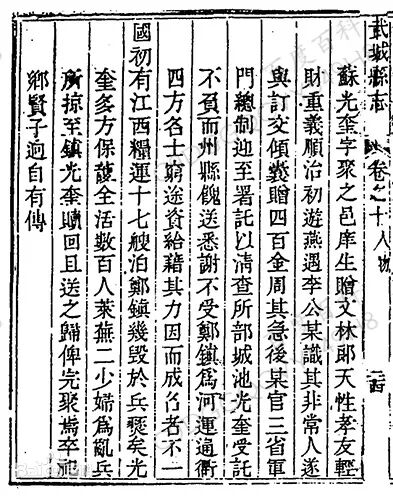 武城縣志 卷之十人物
蘇光奎字聚之邑庠生贈文林郎天性孝友輕
財重義順治初遊燕遇李公某識其非常人遂
與訂交傾囊贈四百金周其急後某官三省軍
門總制迎至署託以清查所部城池光奎受託
不負而州縣餽送悉謝不受鄭鎮爲河運通衢
四方名士窮途資給藉其力因而成名者不一
國初有江西糧運十七艘泊鄭鎮幾毀於兵燹矣光
奎多方保護全活數百人萊蕪二少婦爲亂兵
所掠至鎮光奎贖回且送之歸俾完聚焉卒祀
鄉賢子逈自有傳